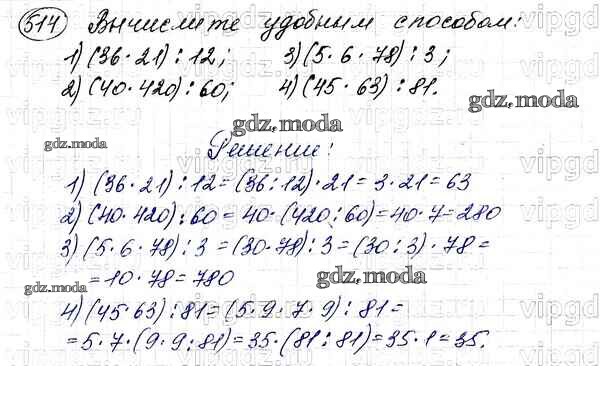 514 Вычислите удобным способом:
1) (36·21):12; 3) (5·6·78):3;
2) (40·420):60; 4) (45·63):81.
gdz.moda
gdz.moda
gdz.moda
Решение:
1) (36·21):12=(36:12)·21=3·21=63
2) (40·420):60=40·(420:60)=40·7=280
3) (5·6·78):3=(30·78):3=(30:3)·78=
=10·78=780
gdz.moda
gdz.moda
4) (45·63):81=(5·9·7·9):81=
=5·7·(9·9:81)=35·(81:81)=35·1=35.